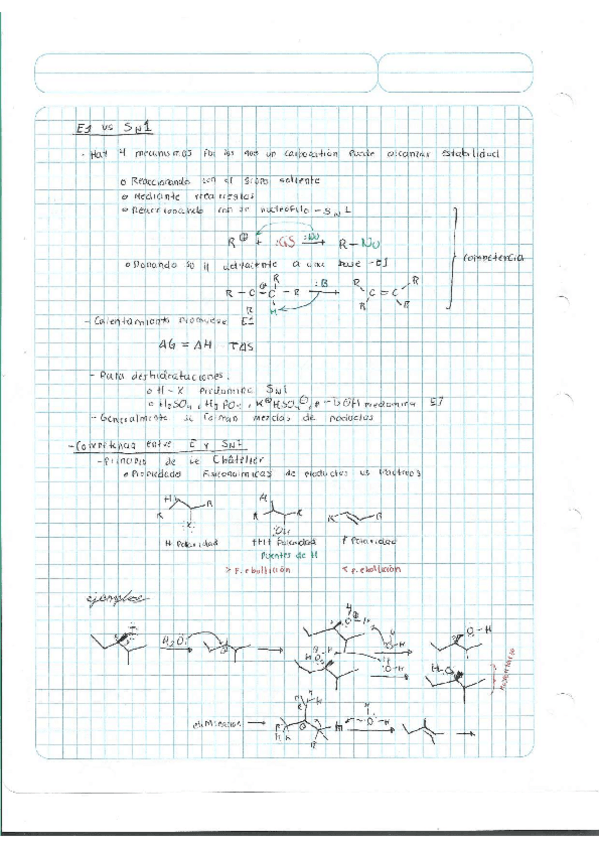 E1 vs SN1
- Hay 4 mecanismos por los que un carbocatión puede alcanzar estabilidad
o Reaccionando con el grupo saliente
o Mediante rearreglos
o Reaccionando con un nucleófilo - SN1
R⊕ + :GS :Nu R-Nu
o Donando su H adyacente a una base - E1
competencia
R - C - C - R :B R C = C R
R R H R R
- Calentamiento promueve E1
ΔG = ΔH TΔS
- Para deshidrataciones.
o H-X Predomina SN1
o H2SO4, H3PO4, K⊕HSO4⊖, predomina E1
- Generalmente se forman mezclas de productos
- Competencia entre E y SN1
- Principio de Le Châtelier
o Propiedades de productos vs reactivos
H R R :X:
H R R :OH
R R
H Polaridad
↑↑↑ Polaridad
↑ Polaridad
Puentes de H
> P. ebullición
< P. ebullición
ejemplos
H2O:
O-H
H-O
eliminación